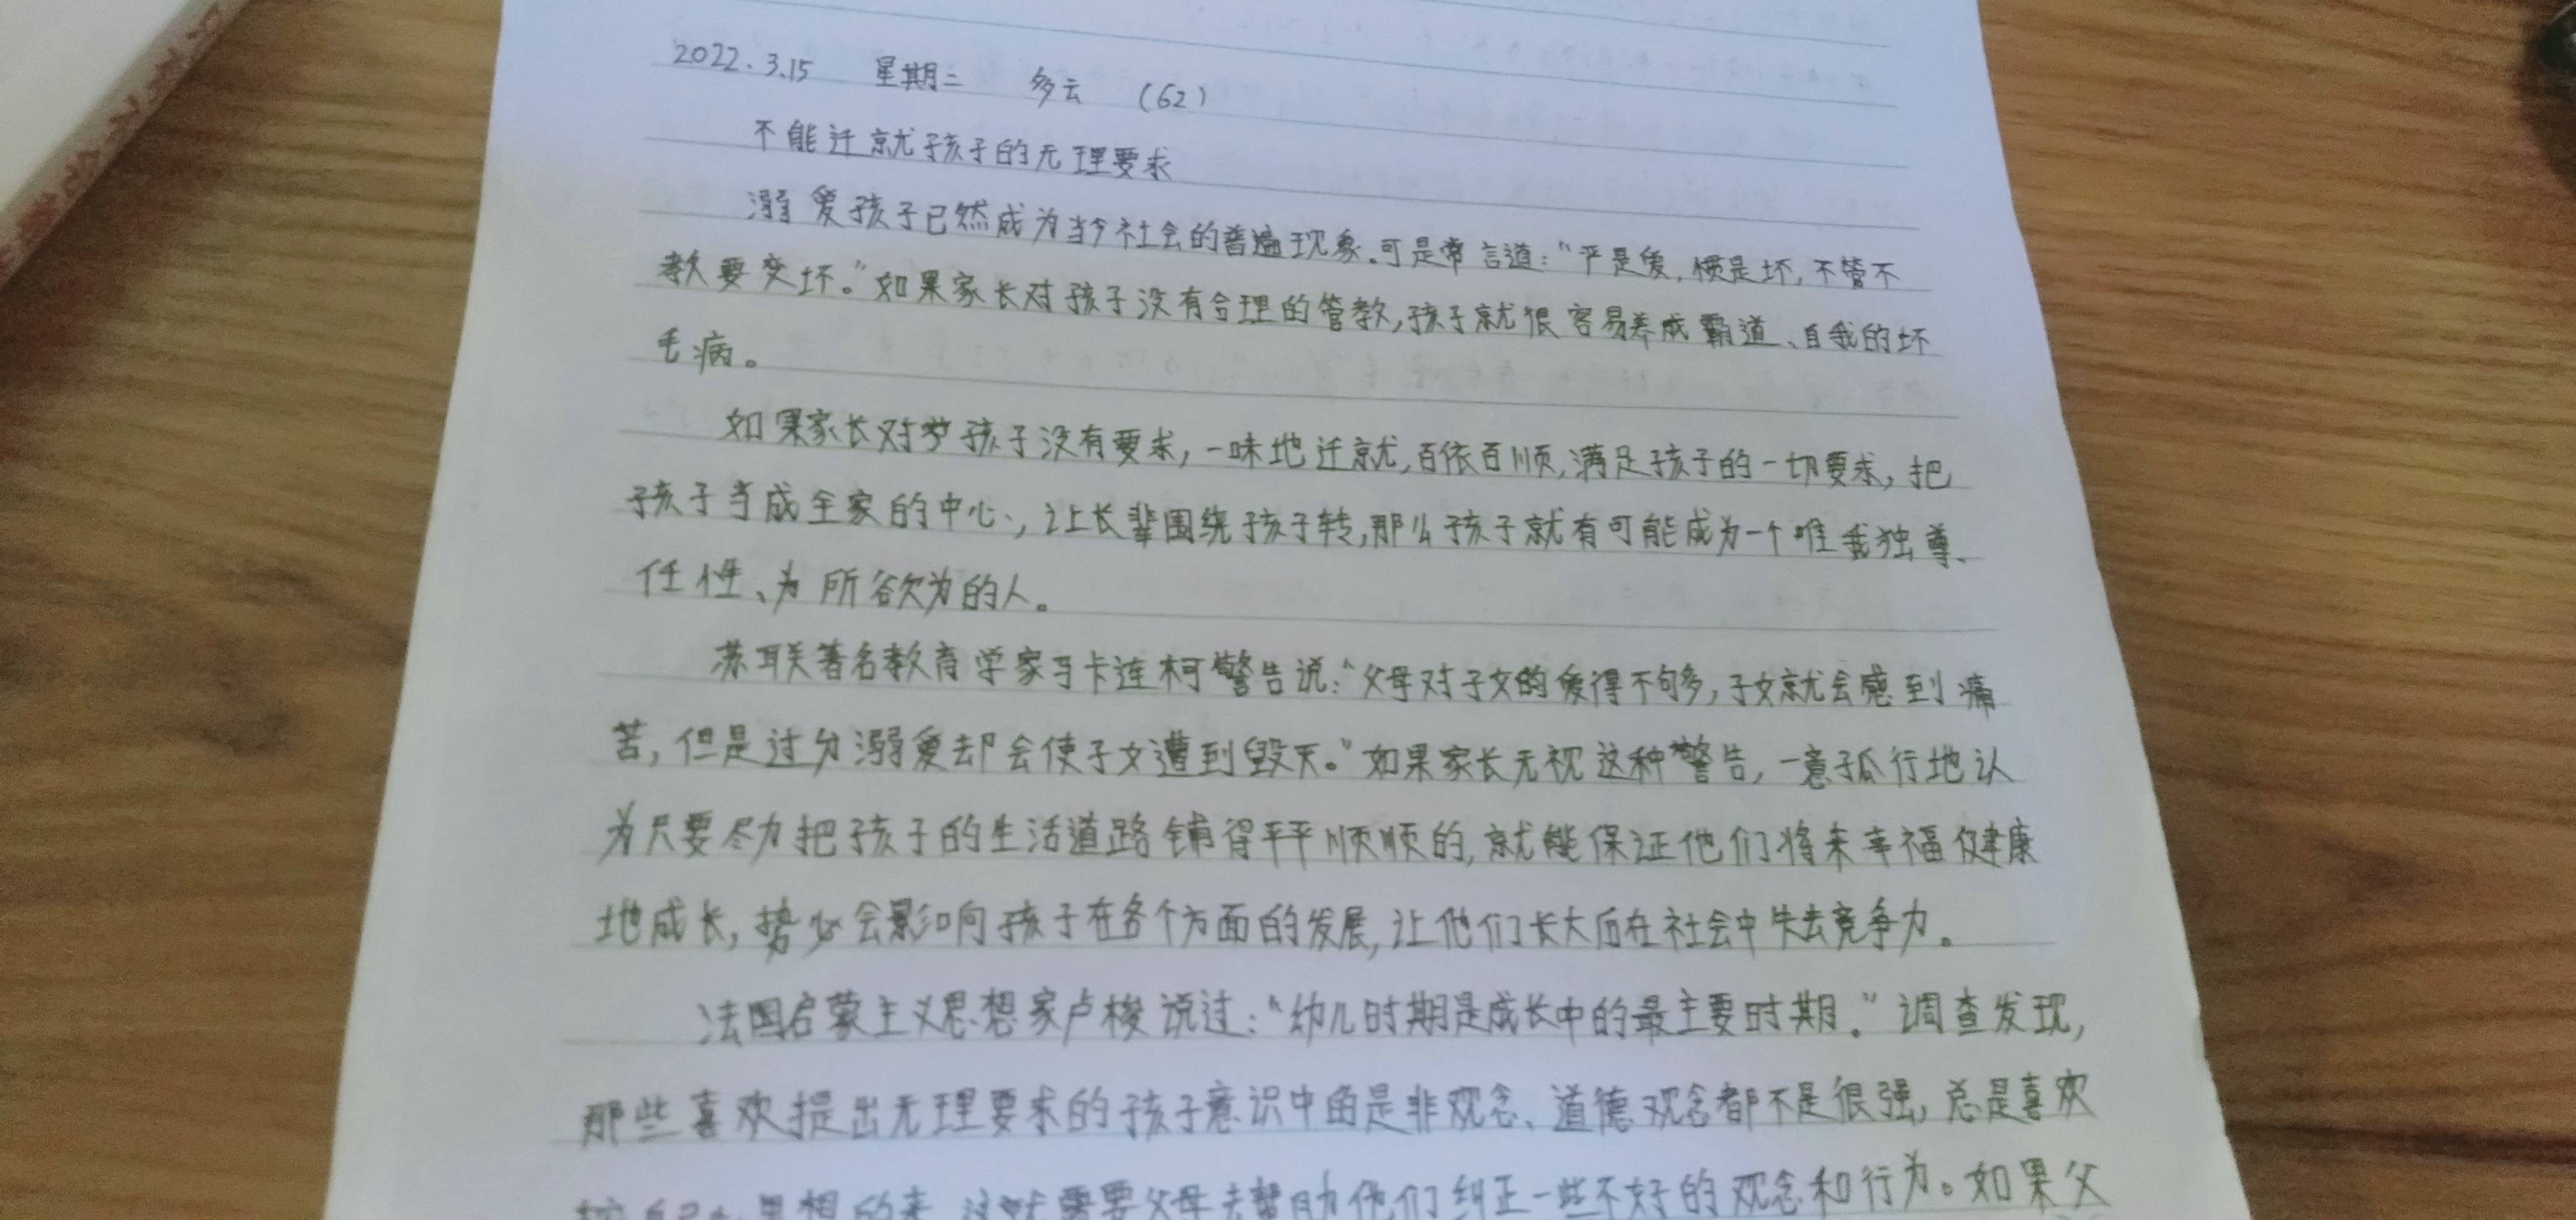 2022.3.15 星期二 多云 (62)
不能迁就孩子的无理要求
溺爱孩子已然成为当今社会的普遍现象。可是常言道：“严是爱，惯是坏，不管不
教要变坏。”如果家长对孩子没有合理的管教，孩子就很容易养成霸道、自我的坏
毛病。
如果家长对孩子没有要求，一味地迁就，百依百顺，满足孩子的一切要求，把
孩子当成全家的中心，让长辈围绕孩子转，那么孩子就有可能成为一个唯我独尊、
任性、为所欲为的人。
苏联著名教育学家马卡连柯警告说：“父母对子女的爱得不够多，子女就会感到痛
苦，但是过分溺爱却会使子女遭到毁灭。”如果家长无视这种警告，一意孤行地认
为只要尽力把孩子的生活道路铺得平平顺顺的，就能保证他们将来幸福健康
地成长，势必会影响孩子在各个方面的发展，让他们长大后在社会中失去竞争力。
法国启蒙主义思想家卢梭说过：“幼儿时期是成长中的最主要时期。”调查发现，
那些喜欢提出无理要求的孩子意识中的是非观念、道德观念都不是很强，总是喜欢
按自己思想的来，这就需要父母去帮助他们纠正一些不好的观念和行为。如果父